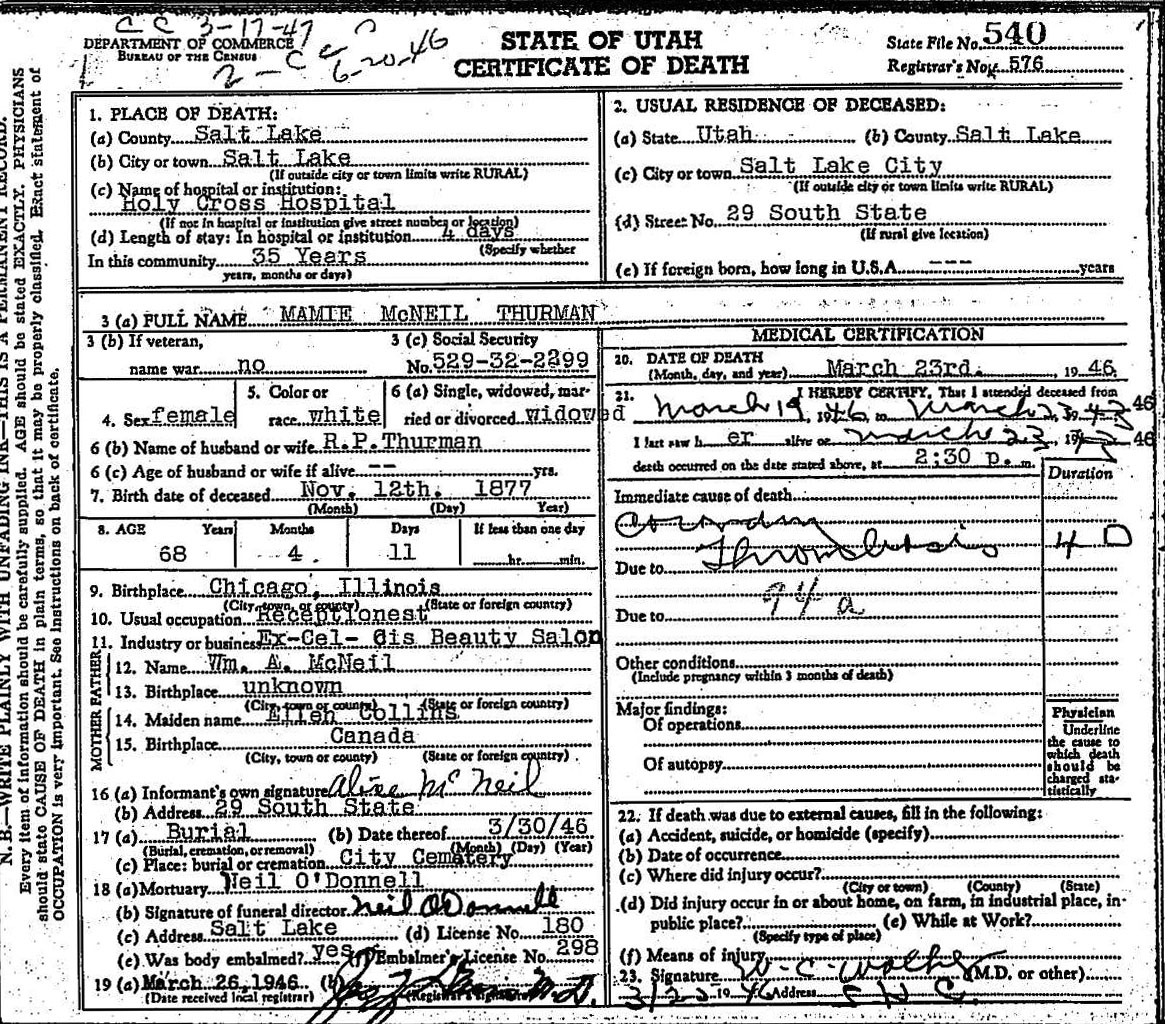 C C 3-17-47
2 - C C 6-20-46
DEPARTMENT OF COMMERCE
BUREAU OF THE CENSUS
STATE OF UTAH
CERTIFICATE OF DEATH
State File No. 540
Registrar's No. 576
N. B.—WRITE PLAINLY WITH UNFADING INK—THIS IS A PERMANENT RECORD.
Every item of information should be carefully supplied. AGE should be stated EXACTLY. PHYSICIANS
should state CAUSE OF DEATH in plain terms, so that it may be properly classified. Exact statement of
OCCUPATION is very important. See instructions on back of certificate.
1. PLACE OF DEATH:
(a) County Salt Lake
(b) City or town Salt Lake
(If outside city or town limits write RURAL)
(c) Name of hospital or institution:
Holy Cross Hospital
(If not in hospital or institution give street number or location)
(d) Length of stay: In hospital or institution 4 days
(Specify whether
In this community 35 Years
years, months or days)
2. USUAL RESIDENCE OF DECEASED:
(a) State Utah (b) County Salt Lake
(c) City or town Salt Lake City
(If outside city or town limits write RURAL)
(d) Street No. 29 South State
(If rural give location)
(e) If foreign born, how long in U.S.A. --- years
3 (a) FULL NAME MAMIE McNEIL THURMAN
3 (b) If veteran,
name war no
3 (c) Social Security
No. 529-32-2299
4. Sex female
5. Color or
race white
6 (a) Single, widowed, mar-
ried or divorced widowed
6 (b) Name of husband or wife R.P.Thurman
6 (c) Age of husband or wife if alive -- yrs.
7. Birth date of deceased Nov. 12th. 1877
(Month) (Day) Year)
8. AGE Years Months Days If less than one day
68 4 11 hr. min.
9. Birthplace Chicago, Illinois
(City, town, or county) (State or foreign country)
10. Usual occupation Receptionest
11. Industry or business Ex-Cel- Cis Beauty Salon
FATHER
12. Name Wm. A. McNeil
13. Birthplace unknown
(City, town or county) (State or foreign country)
MOTHER
14. Maiden name Ellen Collins
15. Birthplace Canada
(City, town or county) (State or foreign country)
16 (a) Informant's own signature Alice McNeil
(b) Address 29 South State
17 (a) Burial (b) Date thereof 3/30/46
(Burial, cremation, or removal) (Month) (Day) (Year)
(c) Place: burial or cremation City Cemetery
18 (a) Mortuary Neil O'Donnell
(b) Signature of funeral director Neil O'Donnell
(c) Address Salt Lake (d) License No. 180
(e) Was body embalmed? yes (f) Embalmer's License No. 298
19 (a) March 26, 1946 (b)
(Date received local registrar) (Registrar's signature) M.D.
MEDICAL CERTIFICATION
20. DATE OF DEATH
(Month, day, and year) March 23rd. , 19 46
21. I HEREBY CERTIFY, That I attended deceased from
March 19, 1946 to March 23 19 46
I last saw h er alive on March 23, 19 46
death occurred on the date stated above, at 2:30 p. m.
Duration
Immediate cause of death
Coronary
Thrombosis 4 D
Due to
94 a
Due to
Other conditions
(Include pregnancy within 3 months of death)
Major findings:
Of operations
Of autopsy
Physician
Underline
the cause to
which death
should be
charged sta-
tistically
22. If death was due to external causes, fill in the following:
(a) Accident, suicide, or homicide (specify)
(b) Date of occurrence
(c) Where did injury occur?
(City or town) (County) (State)
(d) Did injury occur in or about home, on farm, in industrial place, in-
public place? (e) While at Work?
(Specify type of place)
(f) Means of injury
23. Signature W-C-Walker (M.D. or other)
3/25 19 46 Address S H G.